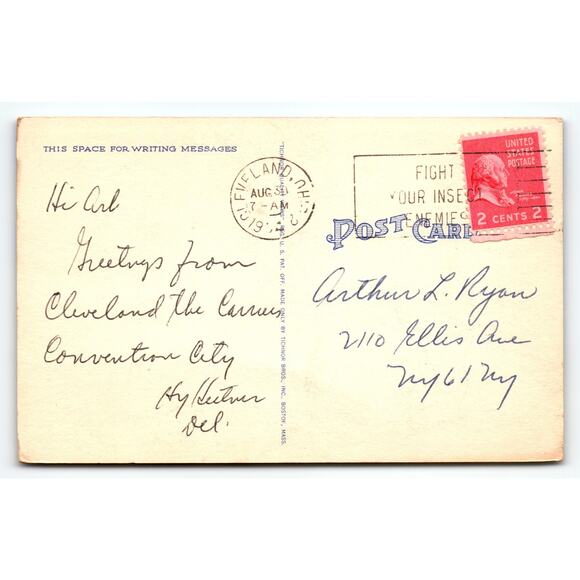 THIS SPACE FOR WRITING MESSAGES
Hi Art
Greetings from
Cleveland the Carriers
Convention City
Hy
Del.
CLEVELAND, OHIO
AUG 31
7 - AM
FIGHT
YOUR INSECT
ENEMIES
UNITED
STATES
POSTAGE
2 CENTS 2
POST CARD
Arthur L. Ryan
2110 Ellis Ave
Ny 61 Ny
U. S. PAT. OFF. MADE ONLY BY TICHNOR BROS., INC., BOSTON, MASS.